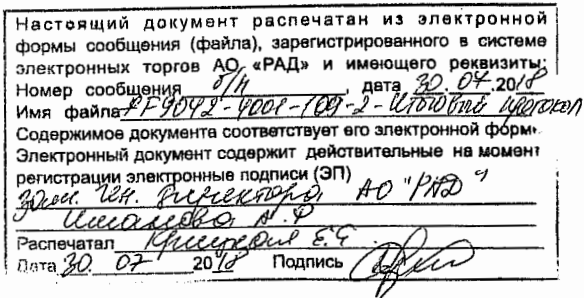 Настоящий документ распечатан из электронной
формы сообщения (файла), зарегистрированного в системе
электронных торгов АО «РАД» и имеющего реквизиты:
Номер сообщения б/н, дата 30.07.2018
Имя файла РГ9042-4001-109-2-Итоговый протокол
Содержимое документа соответствует его электронной форме
Электронный документ содержит действительные на момент
регистрации электронные подписи (ЭП)
Зам. ген. директора АО "РАД"
А.Ф
Распечатал
Дата 30. 07 2018 Подпись